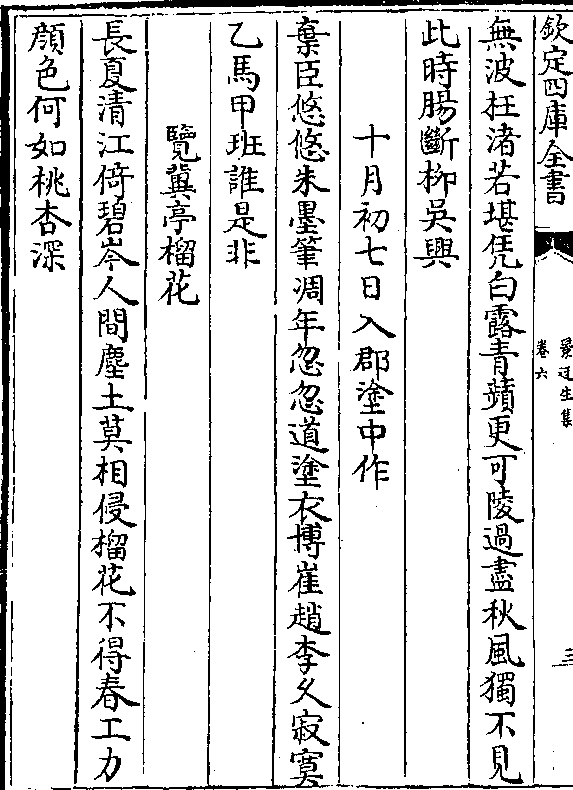 欽定四庫全書
景迂生集
卷六
三
無波枉渚若堪凭白露青蘋更可陵過盡秋風獨不見
此時腸斷柳吳興
十月初七日入郡塗中作
棄臣悠悠朱墨筆凋年忽忽道塗衣博崔趙李久寂寞
乙馬甲班誰是非
覽冀亭榴花
長夏清江倚碧岑人間塵土莫相侵榴花不得春工力
顔色何如桃杏深